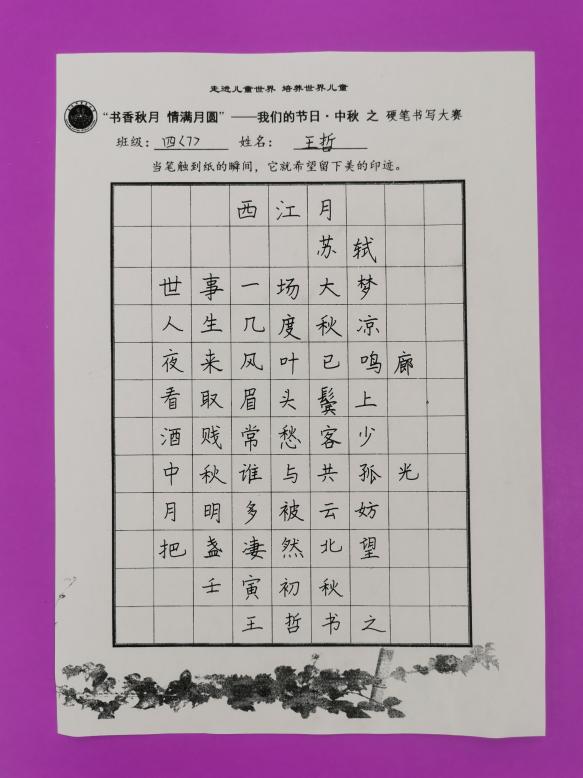 走进儿童世界 培养世界儿童
“书香秋月 情满月圆”——我们的节日·中秋 之 硬笔书写大赛
班级：四〈7〉 姓名：王哲
当笔触到纸的瞬间，它就希望留下美的印迹。
西江月
苏轼
世事一场大梦
人生几度秋凉
夜来风叶已鸣廊
看取眉头鬓上
酒贱常愁客少
中秋谁与共孤光
月明多被云妨
把盏凄然北望
壬寅初秋
王哲书之